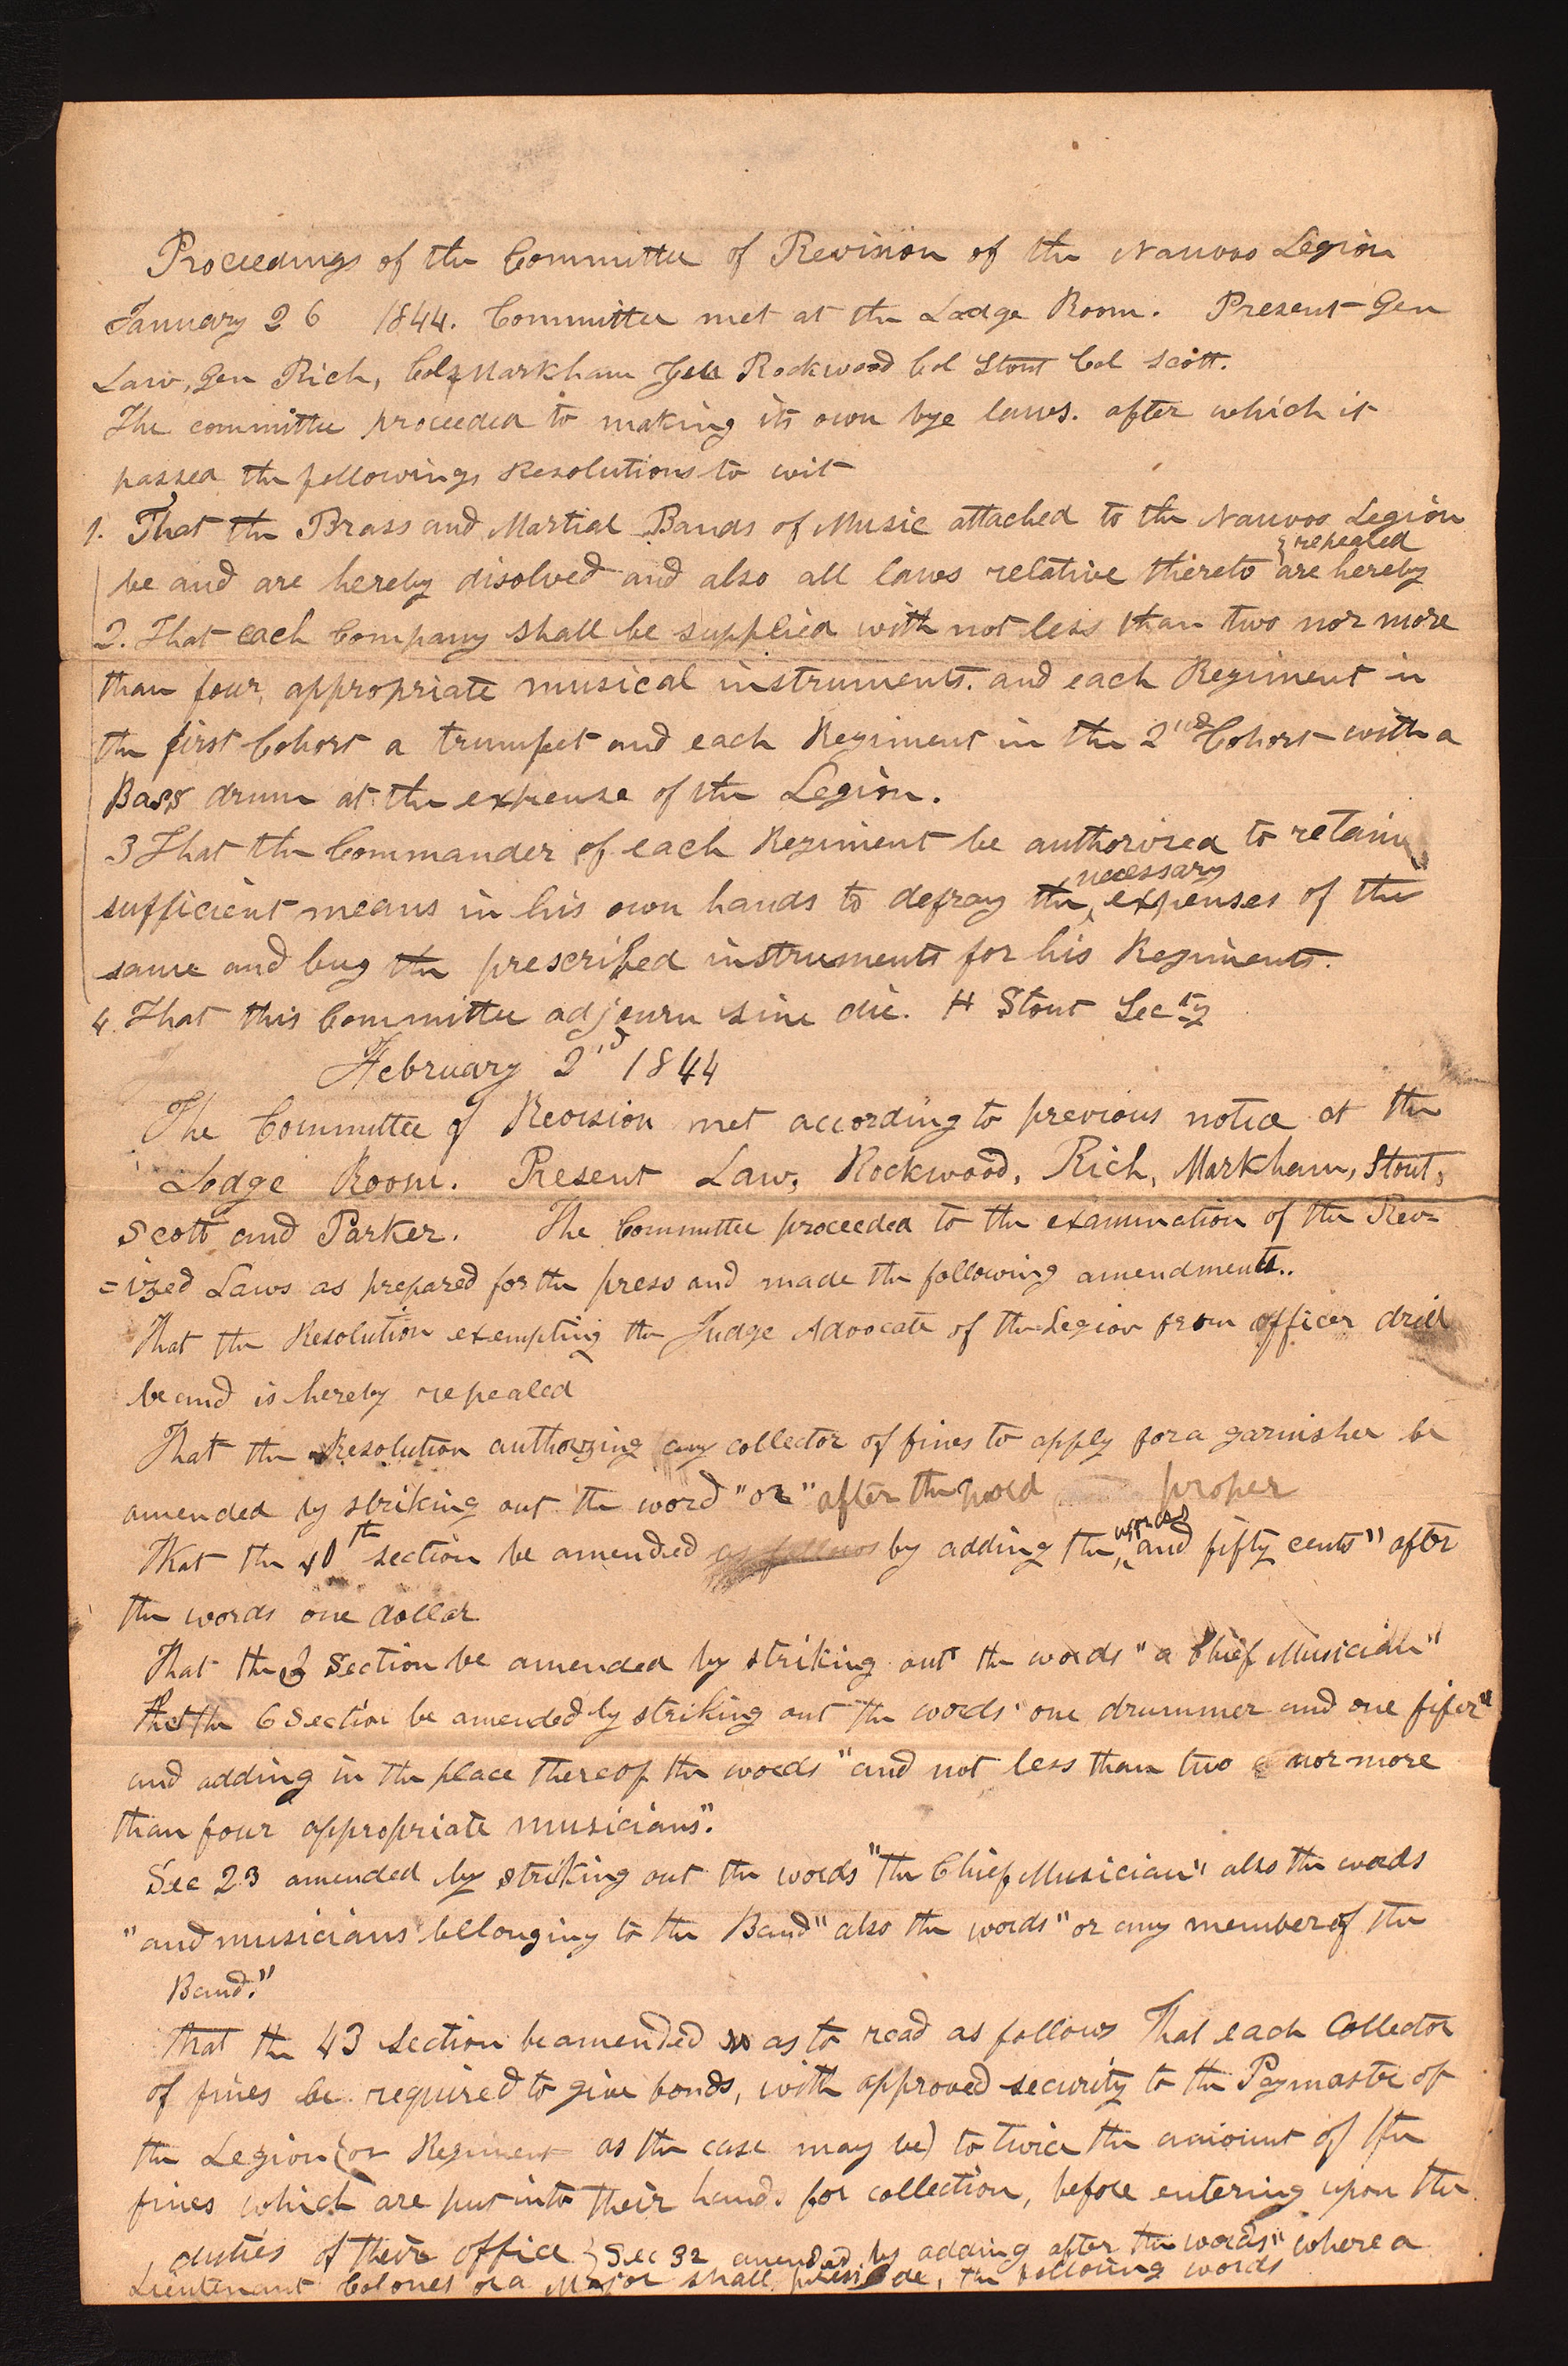 Proceedings of the Committee of Revision of the Nauvoo Legion
January 26 1844. Committee met at the Lodge Room. Present Gen
Law, Gen Rich, Col Markham Rockwood Col Stout Col Scott.
The committee proceeded to making its own bye laws. after which it
passed the followings Resolutions to wit
1. That the Brass and Martial Bands of Music attached to the Nauvoo Legion
be and are hereby disolved and also all laws relative thereto are hereby repealed
2. That each Company shall be supplied with not less than two nor more
than four appropriate musical instruments. and each Regiment in
the first Cohort a trumpet and each Regiment in the 2nd Cohort with a
Bass drum at the expense of the Legion.
3 That the Commander of each Regiment be authorised to retain
sufficient means in his own hands to defray the necessary expenses of the
same and buy the prescribed instruments for his Regiments.
4. That this Committee adjourn sine die. H Stout Secty
February 2nd 1844
The Committee of Revision met according to previous notice at the
Lodge Room. Present Law, Rockwood, Rich, Markham, Stout,
Scott and Parker. The Committee proceeded to the examination of the Rev=
=ized Laws as prepared for the press and made the following amendments..
That the Resolution exempting the Judge Advocate of the Legion from officer drill
be and is hereby repealed
That the Resolution authorzing any collector of fines to apply for a garnishee be
amended by striking out the word "or" after the word proper
That the 40th section be amended as follows by adding the words "and fifty cents" after
the words one dollar
That the 3 Section be amended by striking out the words "a Chief Musician"
that the 6 Section be amended by striking out the words "one drummer and one fifer"
and adding in the place thereof the words "and not less than two nor more
than four appropriate musicians".
Sec 23 amended by striking out the words "the Chief Musician" also the words
"and musicians bellonging to the Band" also the words "or any member of the
Band."
that the 43 section be amended so as to read as follows That each Collector
of fines be required to give bonds, with approved security to the Paymaster of
the Legion (or Regiment as the case may be) to twice the amount of the
fines which are put into their hands for collection, before entering upon the
duties of their office } Sec 32 amended by adding after the words "where a
Lieutenant Colonel or a Major shall preside, the following words